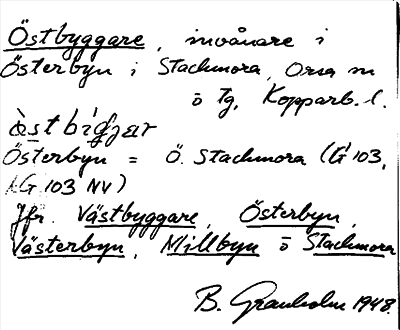 Östbyggare, invånare i
Österbyn i Stackmora, Orsa sn
o Tg, Kopparb. l.
Österbyn = Ö. Stackmora (G 103,
G 103 NV)
Jfr. Västbyggare, Österbyn,
Västerbyn, Millbyn o Stackmora
B. Granholm 1948.